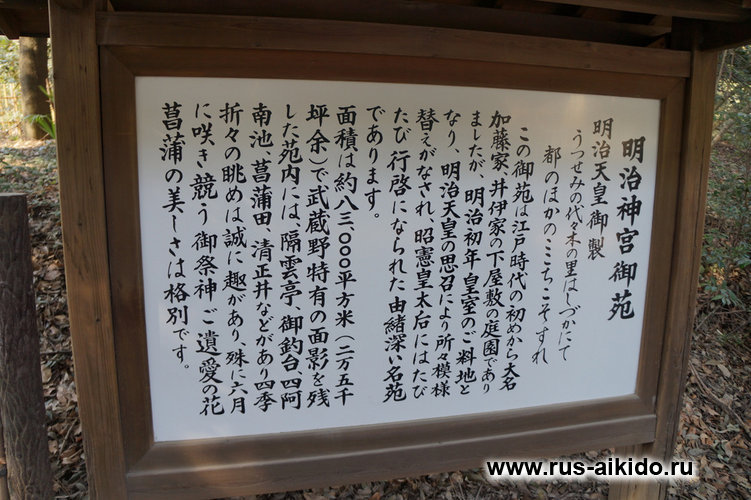 明治神宮御苑
明治天皇御製
うつせみの代々木の里はしづかにて
都のほかのここちこそすれ
この御苑は江戸時代の初めから大名
加藤家、井伊家の下屋敷の庭園であり
ましたが、明治初年皇室のご料地と
なり、明治天皇の思召により所々模様
替えがなされ、昭憲皇太后にはたび
たび行啓になられた由緒深い名苑
であります。
面積は約八三、〇〇〇平方米（二万五千
坪余）で武蔵野特有の面影を残
した苑内には、隔雲亭、御釣台、四阿
南池、菖蒲田、清正井などがあり四季
折々の眺めは誠に趣があり、殊に六月
に咲き競う御祭神ご遺愛の花
菖蒲の美しさは格別です。
www.rus-aikido.ru